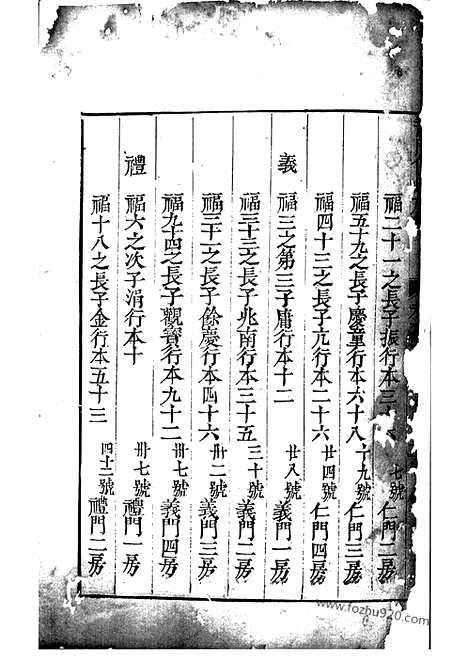 福二十一之長子振行本三 七號 仁門二房
福五十九之長子慶童行本六十八 十九號 仁門三房
福四十三之長子亢行本二十六 廿四號 仁門四房
義 福三之第三子庸行本十二 廿八號 義門一房
福三十三之長子兆南行本三十五 三十號 義門二房
福三十一之長子餘慶行本四十六 卅二號 義門三房
福九十四之長子觀寶行本九十二 卅七號 義門四房
禮 福六之次子涓行本十 卅七號 禮門一房
福十八之長子金行本五十三 四十二號 禮門二房
www.fozhu920.com